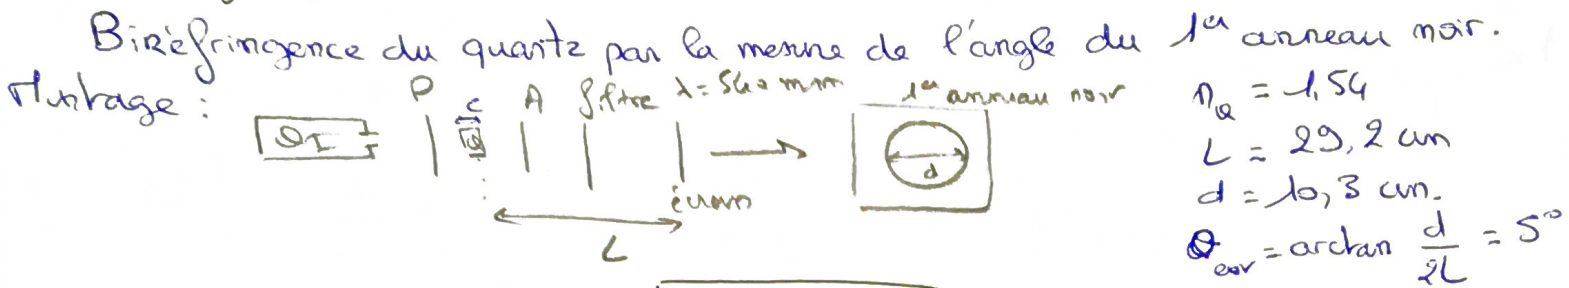 Biréfringence du quartz par la mesure de l'angle du 1er anneau noir.
Montage :
P e A filtre λ = 540 nm 1er anneau noir
QI Q d
écran
L
n_Q = 1,54
L = 29,2 cm
d = 10,3 cm.
θ_ext = arctan d/2L = 5°